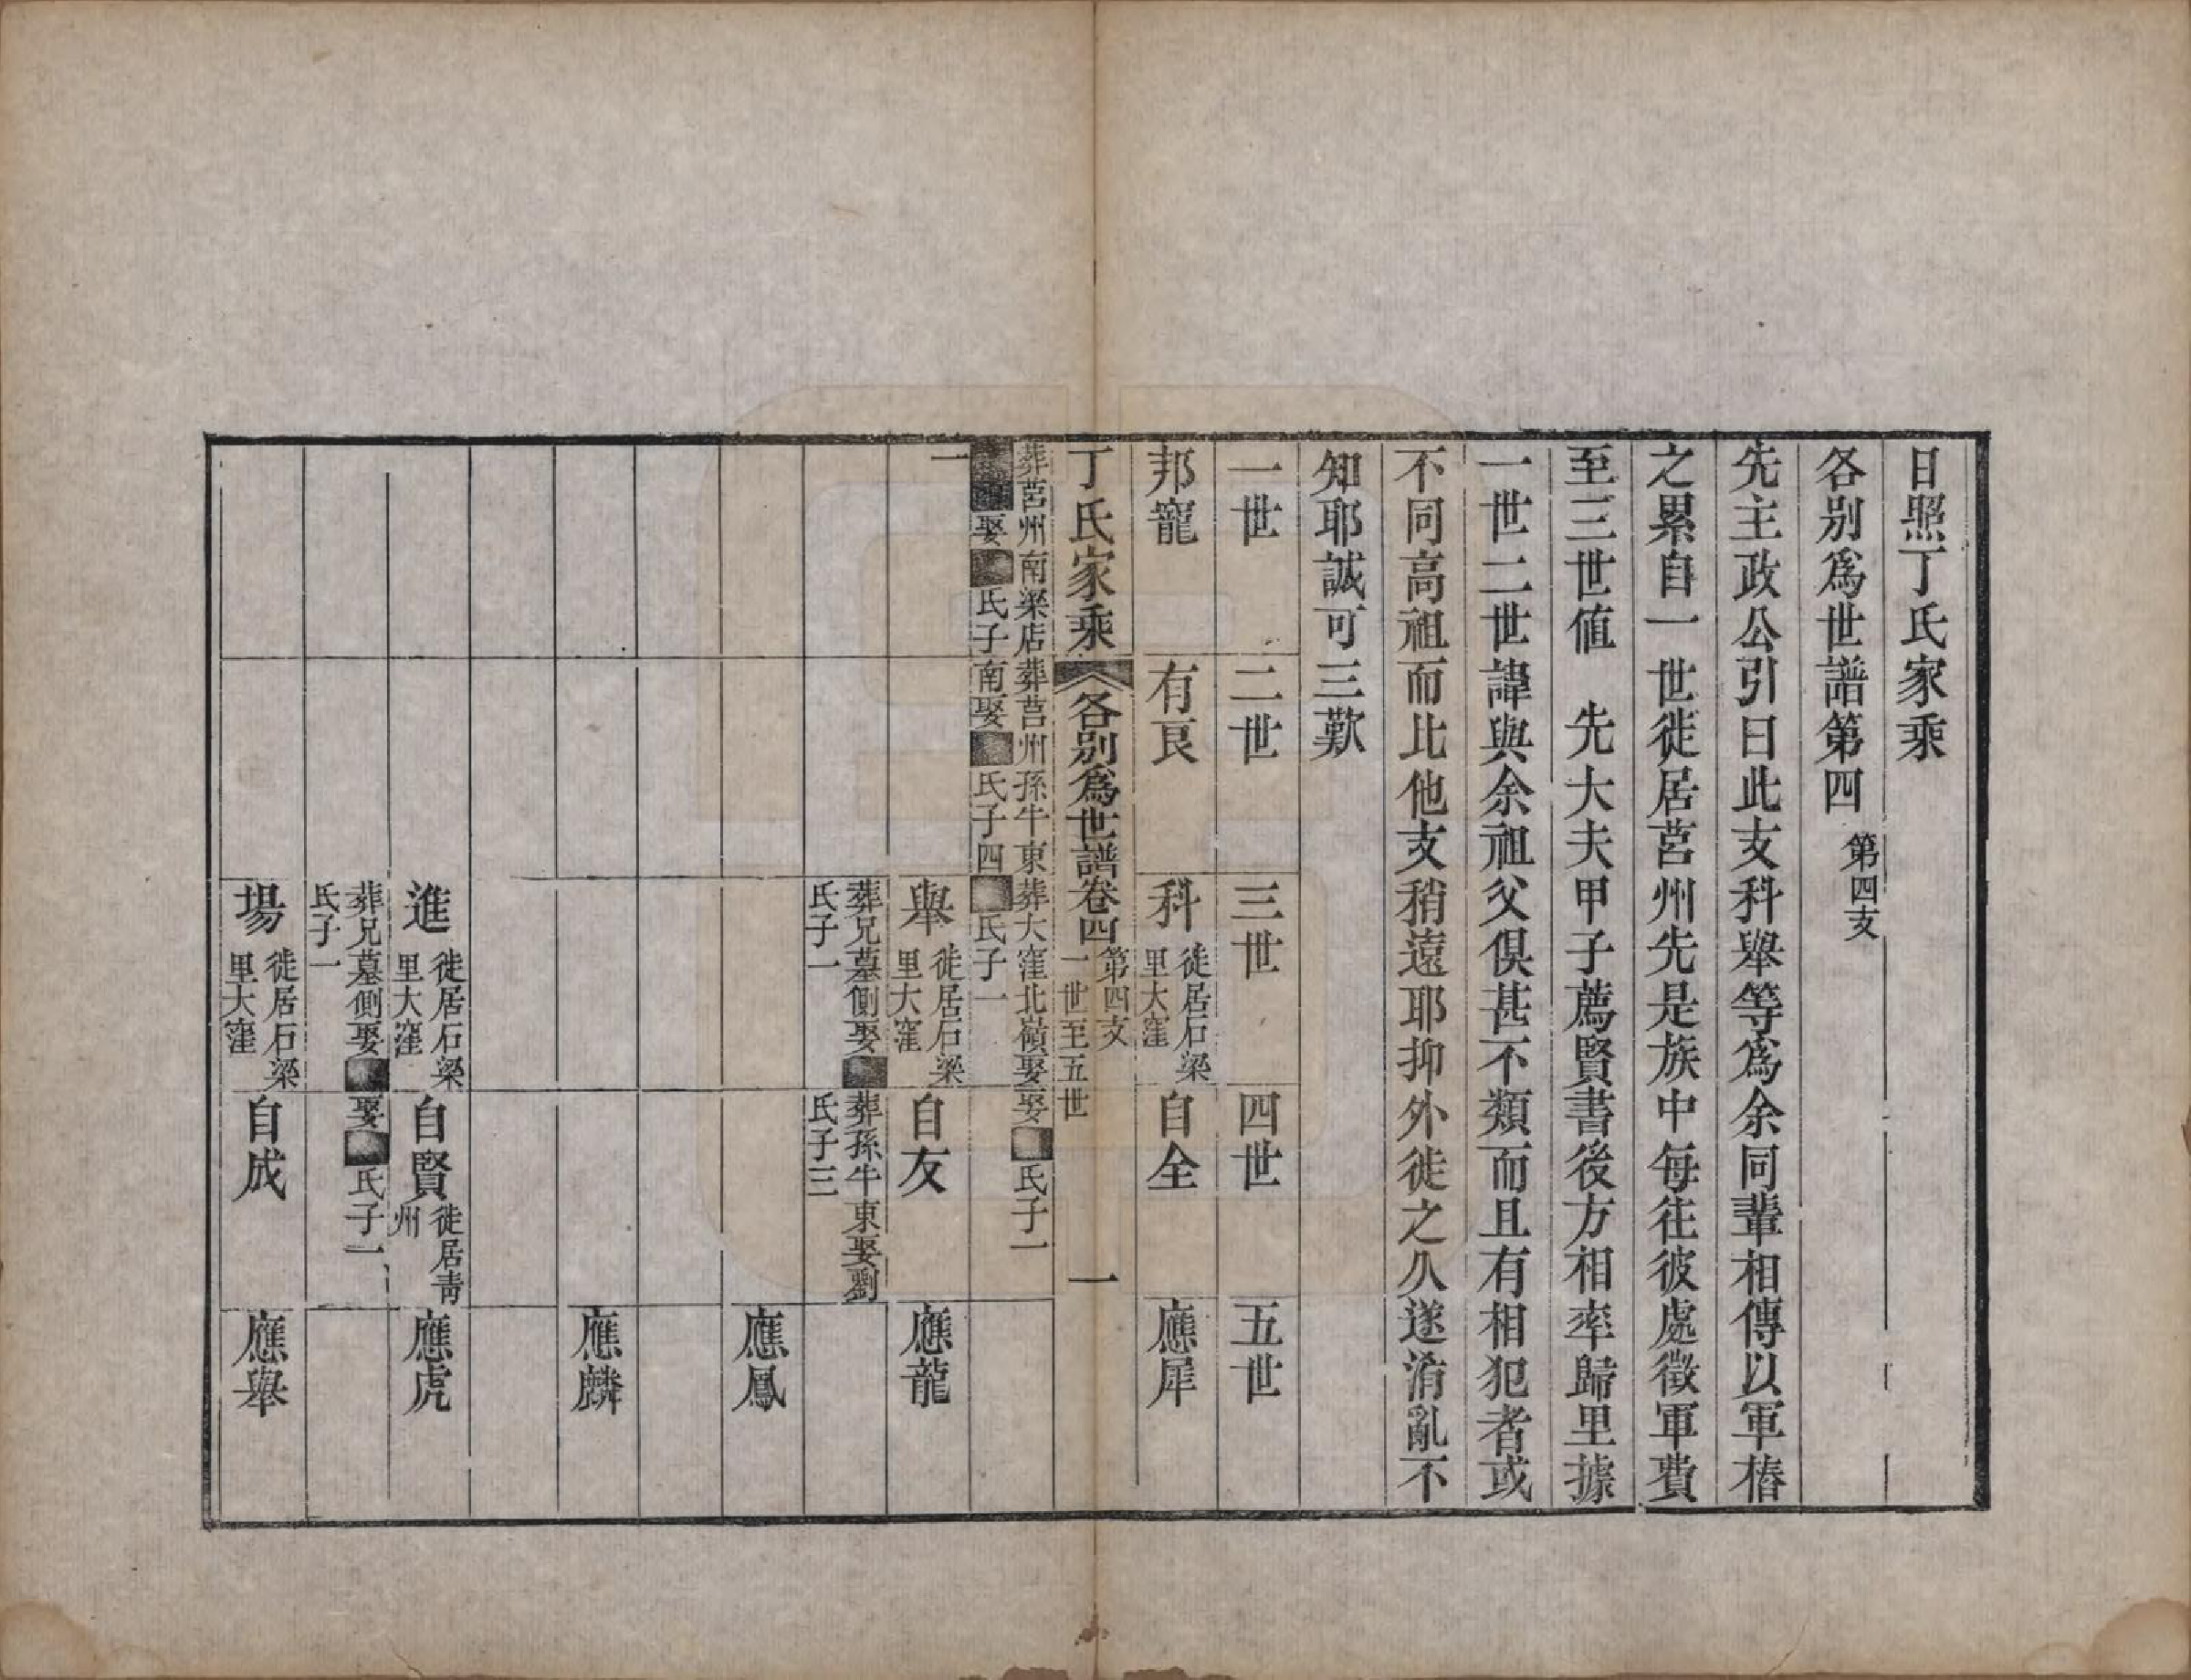 日照丁氏家乘
各别爲世譜第四 第四支
先主政公引曰此支科舉等爲余同輩相傳以軍樁
之累自一世徙居莒州先是族中每往彼處徵軍費
至三世值　先大夫甲子薦賢書後方相率歸里據
一世二世諱與余祖父俱甚不類而且有相犯者或
不同高祖而比他支稍遠耶抑外徙之久遂淆亂不
知耶誠可三歎
一世　二世　三世　四世　五世
邦寵　有良　科 徙居石梁里大窪　自全　應犀
丁氏家乘　各别爲世譜卷四 第四支 一世至五世　一
葬莒州南梁店　葬莒州孫牛東　葬大窪北嶺娶　娶■氏子一
■■娶■氏子　南娶■氏子四　■氏子一
一　舉 徙居石梁里大窪　自友　應龍
葬兄墓側娶■氏子一　葬孫牛東娶劉氏子三
應鳳
應麟
進 徙居石梁里大窪　自賢 徙居靑州　應虎
葬兄墓側娶■氏子一　娶■氏子一
場 徙居石梁里大窪　自成　應舉